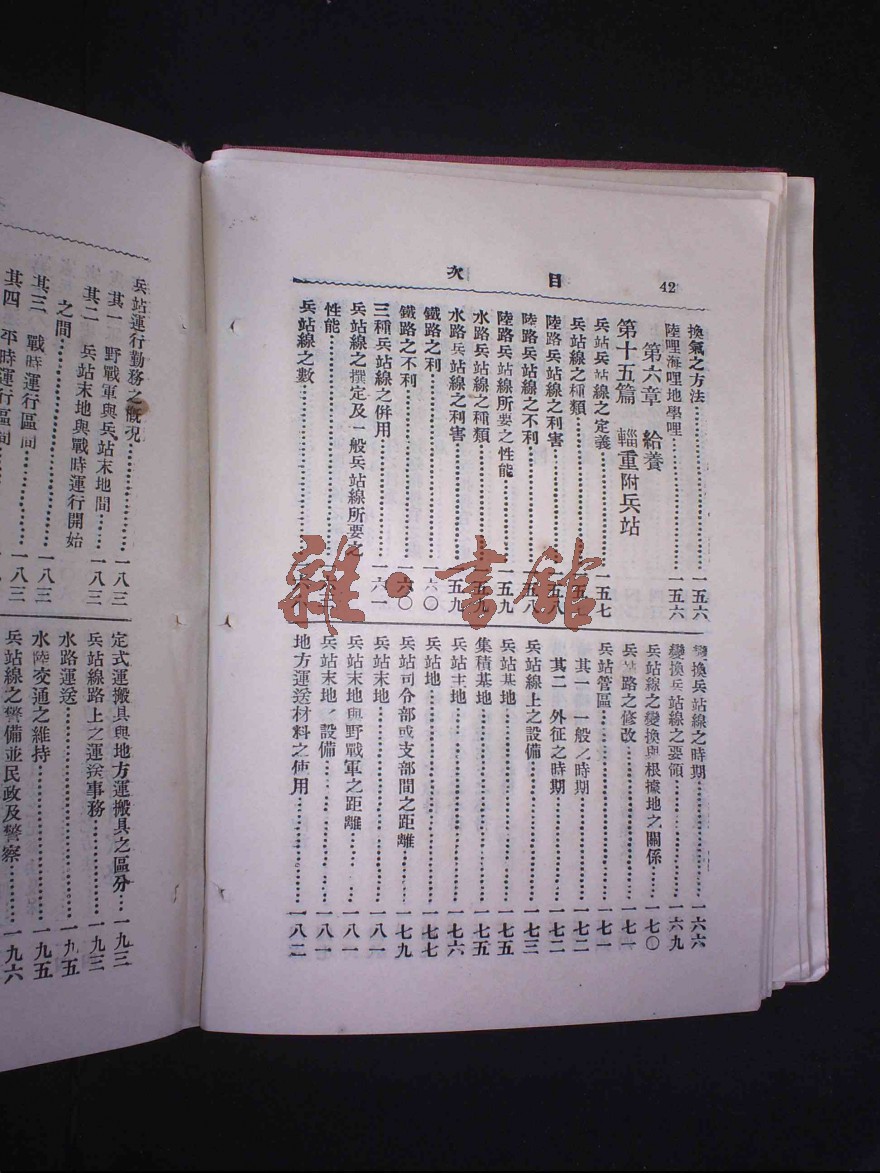 目次
42
換氣之方法⋯⋯一五六
陸哩海哩地學哩⋯⋯一五六
第六章 給養
第十五篇 輜重附兵站
兵站兵站線之定義⋯⋯一五七
兵站線之種類⋯⋯一五七
陸路兵站線之利害⋯⋯一五八
陸路兵站線之不利⋯⋯一五八
陸路兵站線所要之性能⋯⋯一五九
水路兵站線之種類⋯⋯一五九
水路兵站線之利害⋯⋯一五九
鐵路之利⋯⋯一六〇
鐵路之不利⋯⋯一六〇
三種兵站線之併用⋯⋯一六一
兵站線之撰定及一般兵站線所要之
性能⋯⋯
兵站線之數⋯⋯
變換兵站線之時期⋯⋯一六六
變換兵站線之要領⋯⋯一六九
兵站線之變換與根據地之關係⋯⋯一七〇
兵站路之修改⋯⋯一七一
兵站管區⋯⋯一七一
其一 一般之時期⋯⋯一七二
其二 外征之時期⋯⋯一七二
兵站線上之設備⋯⋯一七三
兵站基地⋯⋯一七五
集積基地⋯⋯一七五
兵站主地⋯⋯一七六
兵站地⋯⋯一七七
兵站司令部或支部間之距離⋯⋯一七九
兵站末地⋯⋯一八一
兵站末地與野戰軍之距離⋯⋯一八一
兵站末地之設備⋯⋯一八一
地方運送材料之使用⋯⋯一八二
兵站運行勤務之概況⋯⋯一八三
其一 野戰軍與兵站末地間⋯⋯一八三
其二 兵站末地與戰時運行開始
之間⋯⋯一八三
其三 戰時運行區間⋯⋯一八三
其四 平時運行區間
定式運搬具與地方運搬具之區分⋯⋯一九三
兵站線路上之運送事務⋯⋯一九三
水路運送⋯⋯一九五
水陸交通之維持⋯⋯一九五
兵站線之警備並民政及警察⋯⋯一九六
雜·書館